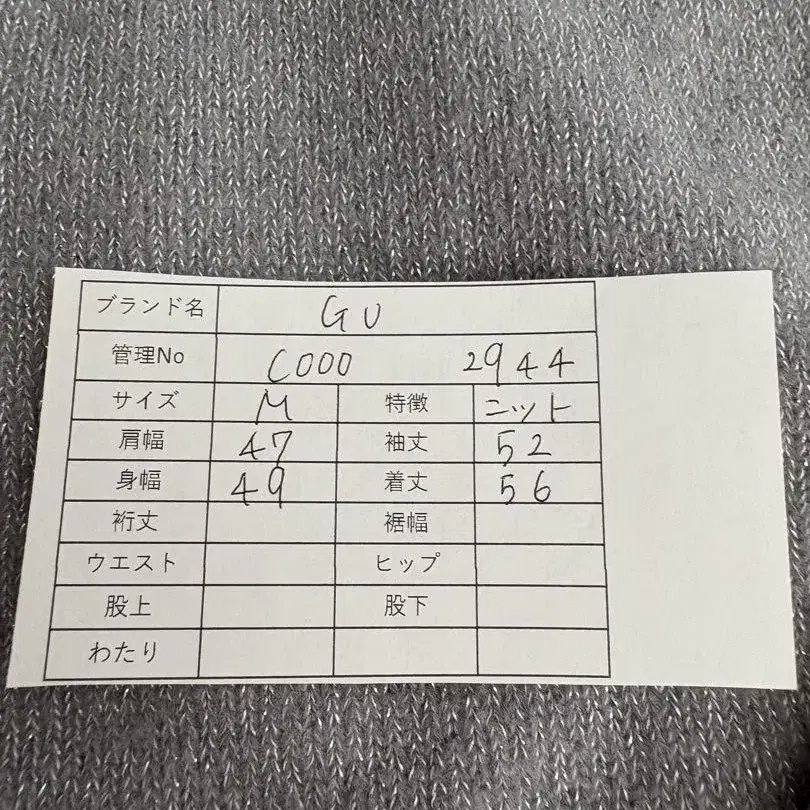 ブランド名 GU
管理No C000 2944
サイズ M 特徴 ニット
肩幅 47 袖丈 52
身幅 49 着丈 56
裄丈 裾幅
ウエスト ヒップ
股上 股下
わたり